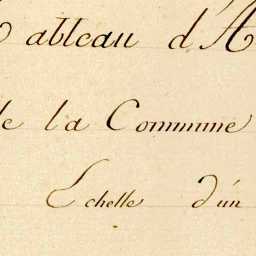 Tableau d'A
de la Commune
Echelle d'un